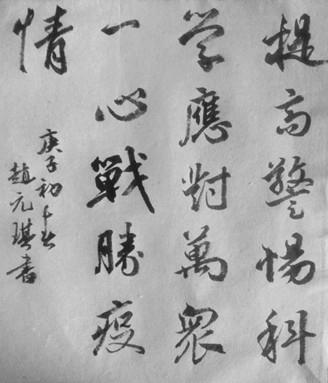 提高警惕科
学應對萬衆
一心戰勝疫
情
庚子初春
趙元琪書